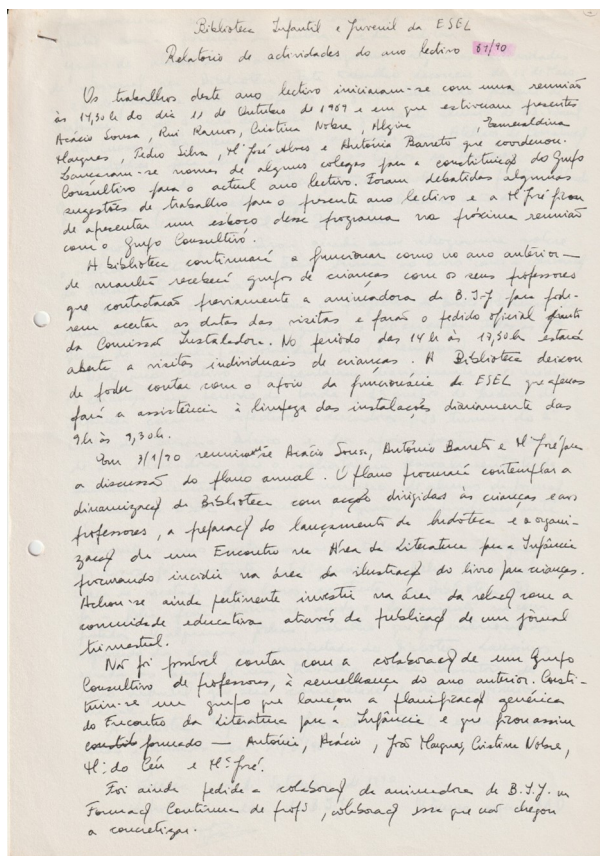 Biblioteca Infantil e Juvenil da ESEL
Relatório de actividades do ano lectivo 89/90
Os trabalhos deste ano lectivo iniciaram-se com uma reunião
às 17,30h do dia 11 de Outubro de 1989 e em que estiveram presentes
Acácio Sousa, Rui Ramos, Cristina Nobre, , Esmeraldina
Marques, Pedro Silva, Mª José Alves e Antónia Barreto que coordenou.
Lançaram-se nomes de alguns colegas para a constituiçaõ do Grupo
Consultivo para o actual ano lectivo. Foram debatidas algumas
sugestões de trabalho para o presente ano lectivo e a Mª José ficou
de apresentar um esboço desse programa na próxima reunião
com o Grupo Consultivo.
A biblioteca continuará a funcionar como no ano anterior —
de manhã receberá grupos de crianças com os seus professores
que contactarão previamente a animadora da B.I.J para pode-
rem acertar as datas das visitas e farão o pedido oficial junto
da Comissaõ Instaladora. No período das 14h às 17,30h estará
aberta a visitas individuais de crianças. A Biblioteca deixou
de poder contar com o apoio da funcionária da ESEL que apenas
fará a assistência à limpeza das instalações diariamente das
9h às 9,30h.
Em 3/1/90 reuniram-se Acácio Sousa, Antónia Barreto e Mª José para
a discussaõ do plano anual. O plano procurará contemplar a
dinamizaçaõ da Biblioteca com acções dirigidas às crianças e aos
professores, a preparaçaõ do lançamento da ludoteca e a organi-
zaçaõ de um Encontro na Área da Literatura para a Infância
procurando incidir na área da ilustraçaõ do livro para crianças.
Achou-se ainda pertinente investir na área da relaçaõ com a
comunidade educativa através da publicaçaõ de um jornal
trimestral.
Naõ foi possível contar com a colaboraçaõ de um Grupo
Consultivo de professores, à semelhança do ano anterior. Consti-
tuiu-se um grupo que lançou a planificaçaõ genérica
do Encontro da Literatura para a Infância e que ficou assim
formado — Antónia, Acácio, João Marques, Cristina Nobre,
Mª do Céu e Mª José.
Foi ainda pedida a colaboraçaõ da animadora da B.I.J. na
Formaçaõ Contínua de profs, colaboraçaõ essa que não chegou
a concretizar.